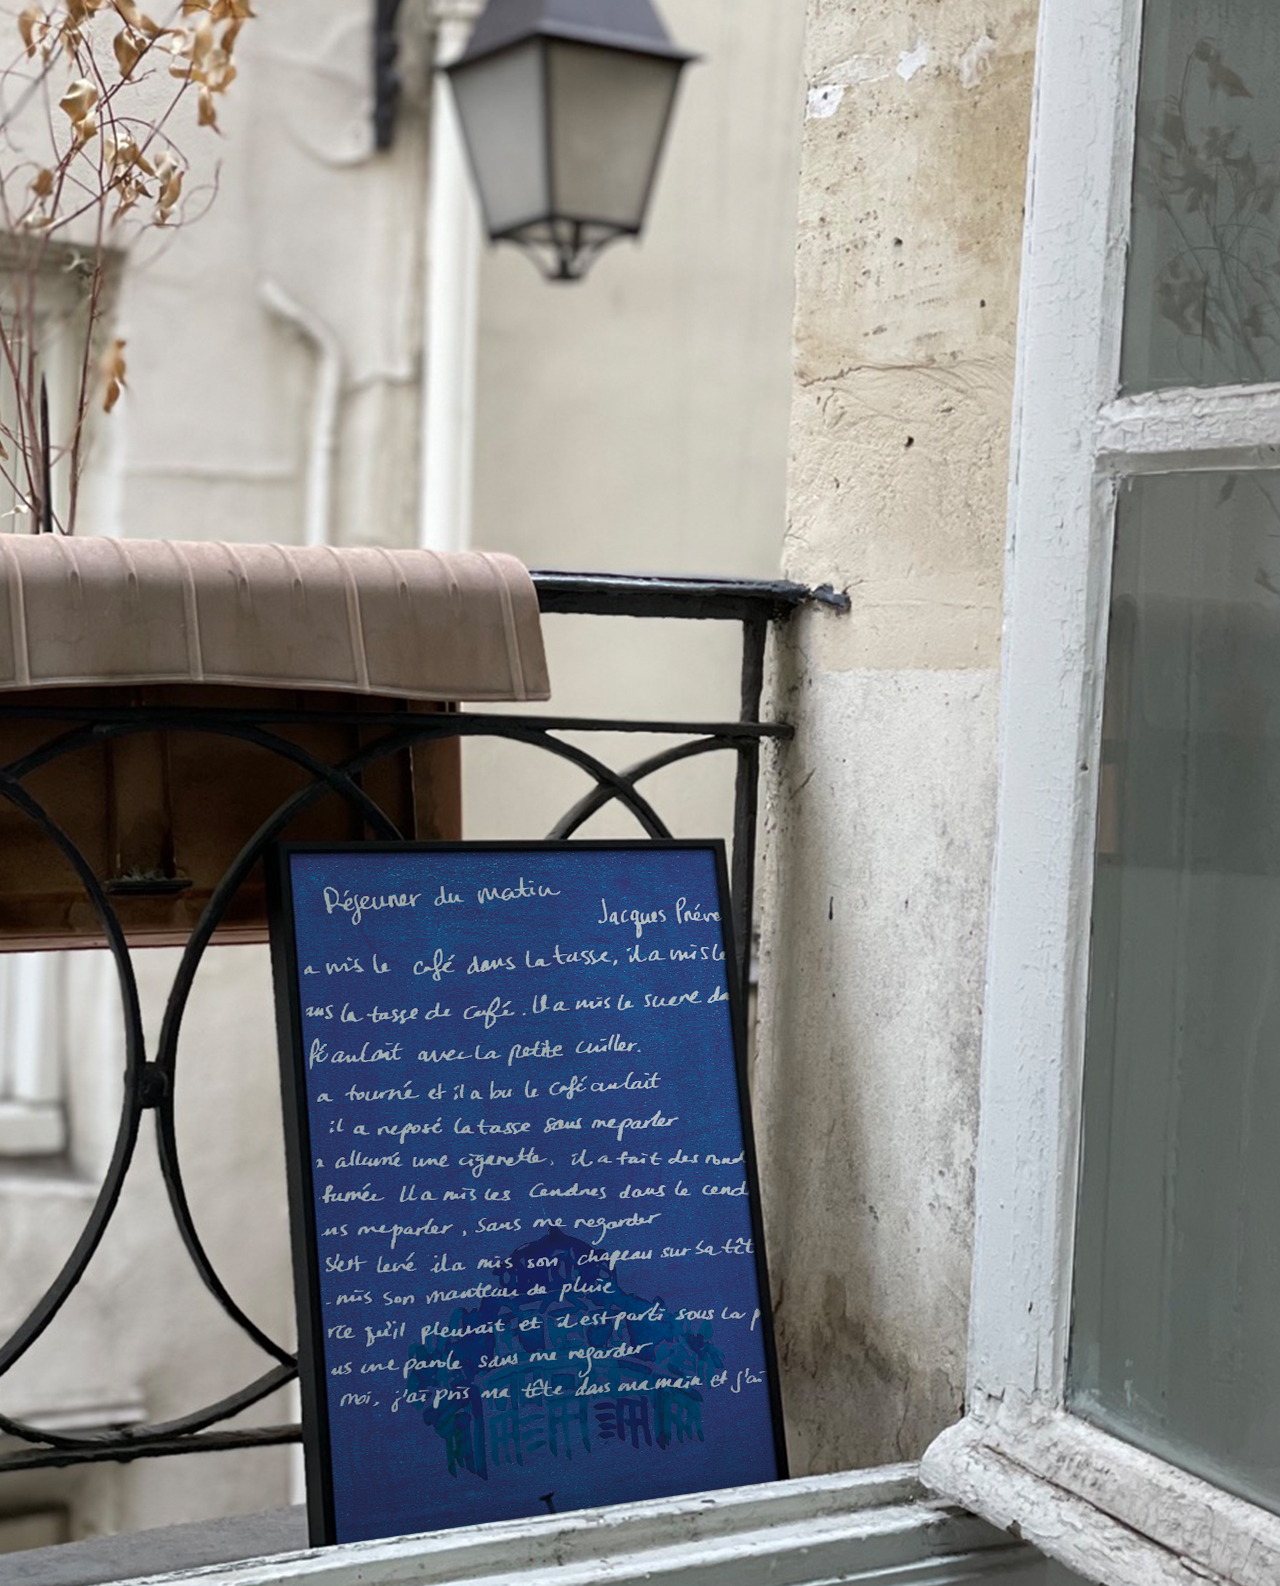 Déjeuner du matin
Jacques Préve
a mis le café dans la tasse, il a mis le
ns la tasse de café. Il a mis le sucre da
fé au lait avec la petite cuiller.
a tourné et il a bu le café au lait
il a reposé la tasse sans me parler
a allumé une cigarette, il a fait des rond
fumée Il a mis les Cendres dans le cend
ns me parler, Sans me regarder
s'est levé il a mis son chapeau sur sa têt
mis son manteau de pluie
rce qu'il pleuvait et il est parti sous la p
us une parole sans me regarder
moi, j'ai pris ma tête dans ma main et j'ai